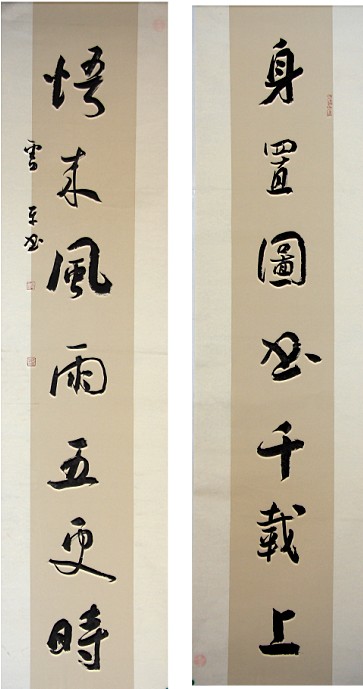 身置圖書千載上
悟来風雨五更時
雪平書